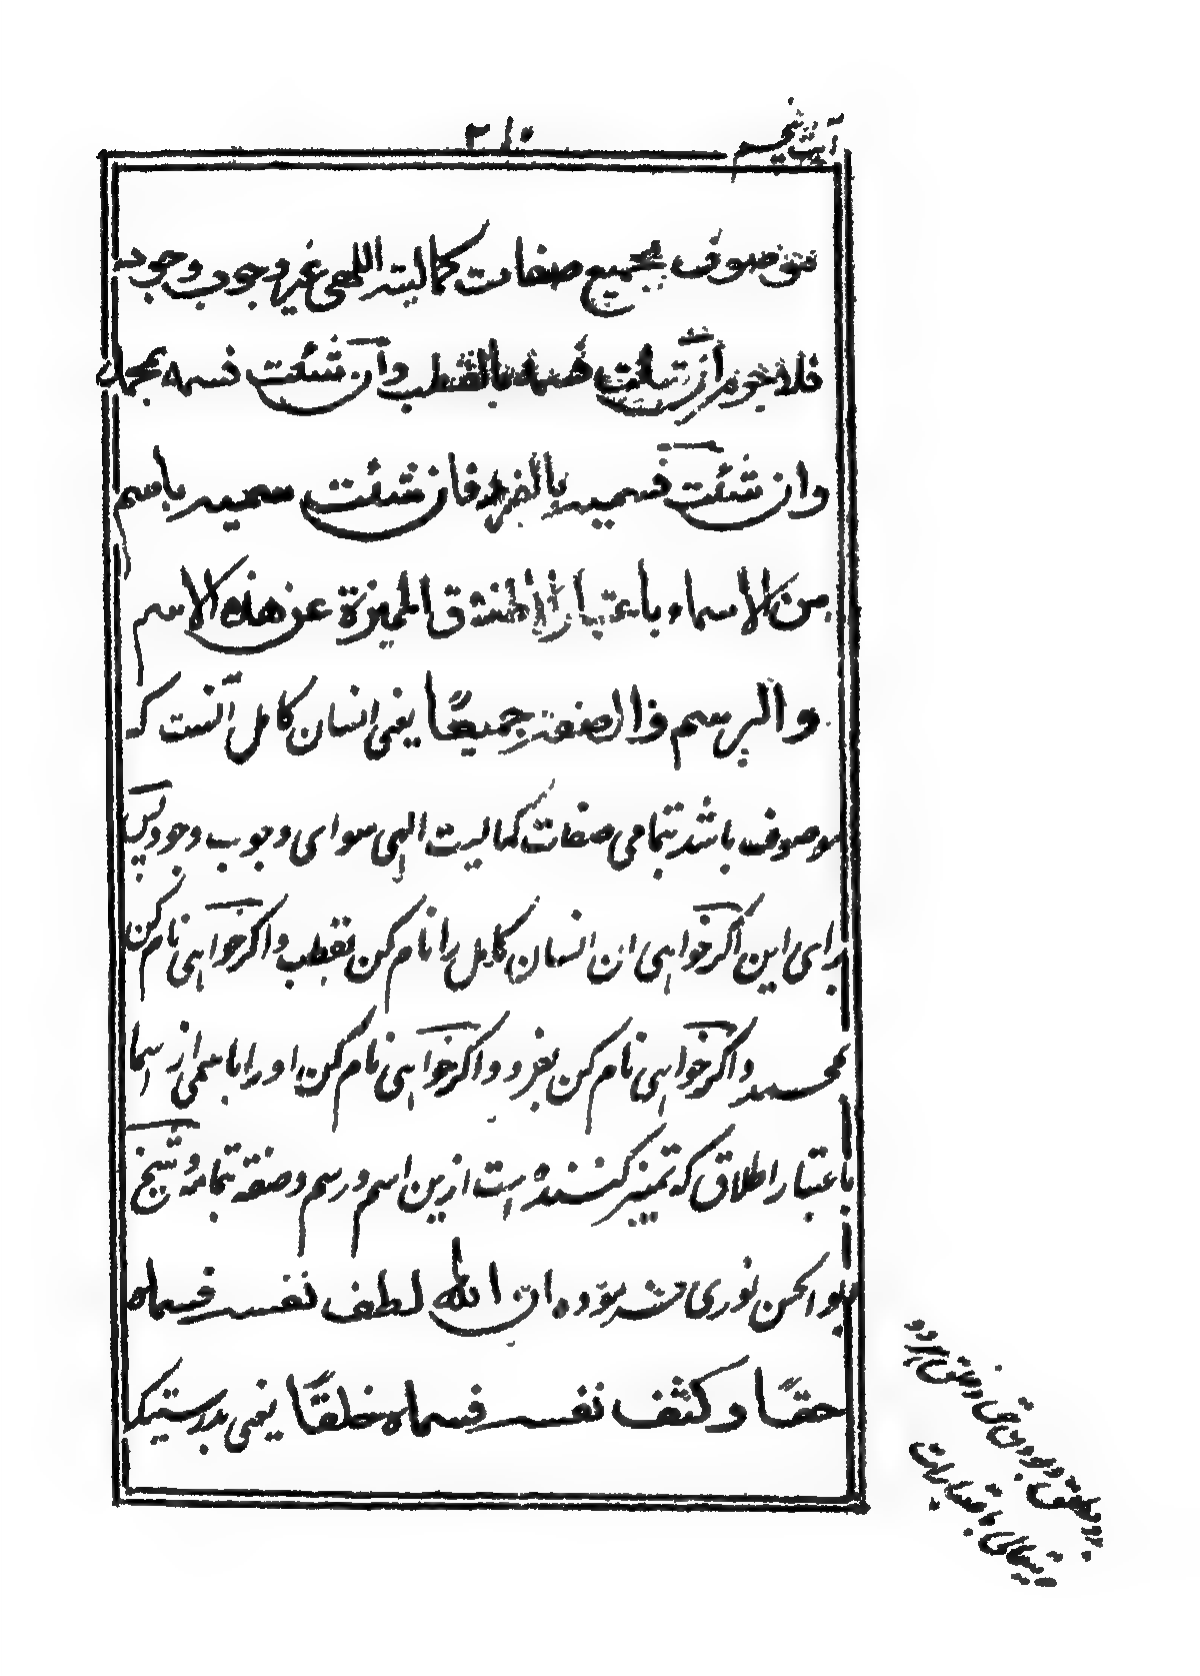 ۲۱۰
موصوف بجمیع صفات کمالیته اللهی غیر وجوب وجوده
فلا جرم ان شئت فسمه بالقطب وان شئت فسمه بمحمد
وان شئت فسمیه بالفرد فان شئت سمیه باسم
من الاسماء باعتبار الاطلاق الممیزة عن هذه الاسم
والرسم والصفة جمیعًا یعنی انسان کامل آنست که
موصوف باشد بتمامی صفات کمالیت الهی سوای وجوب وجود پس
برای این اگر خواهی ان انسان کامل را نام کن بقطب و اگر خواهی نام کن
بمحمد و اگر خواهی نام کن بفرد و اگر خواهی نام کن او را باسمی از اسما
باعتبار اطلاق که تمیز کننده است ازین اسم و رسم و صفة تمامه و شیخ
ابو الحسن نوری فرموده ان الله لطف نفسه فسماه
حقا و کثف نفسه فسماه خلقًا یعنی بدرستیکه